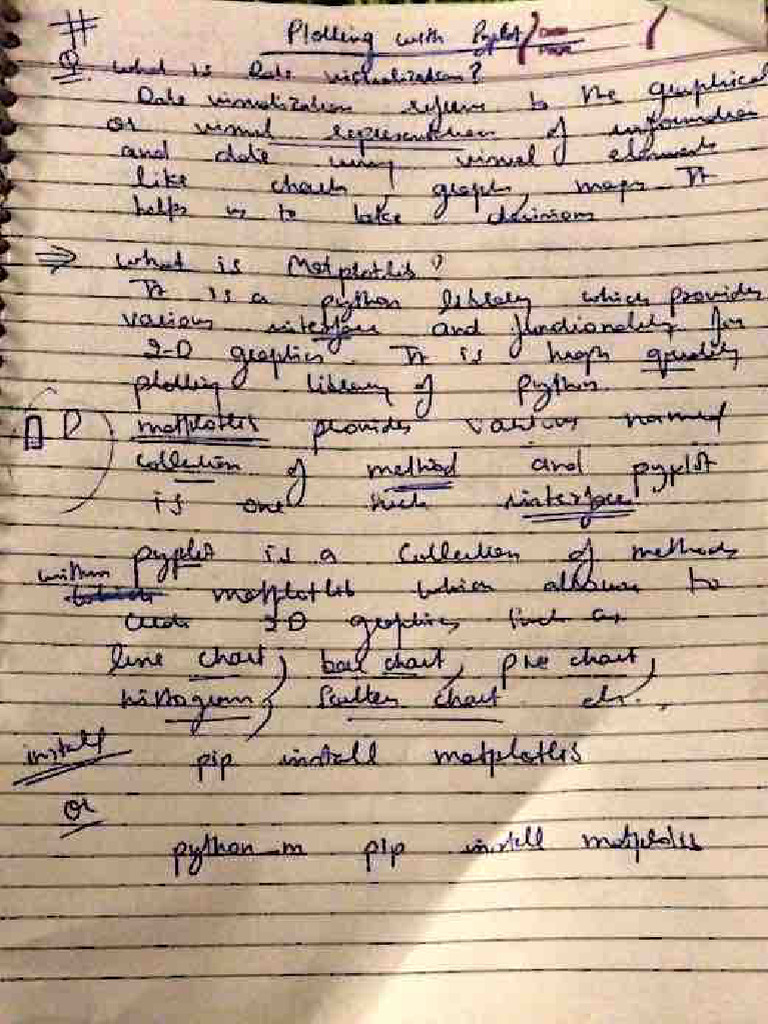 # Plotting with Pyplot
Date
Page
Q What is Data visualization?
Data visualization refers to the graphical
or visual representation of information
and data using visual elements
like charts, graphs, maps It
helps us to take decisions
⇒ What is Matplotlib?
It is a python library which provides
various interface and functionality for
2-D graphics. It is high quality
plotting library of Python.
matplotlib provides various named
collection of method and pyplot
is one such interface
pyplot is a collection of methods
within matplotlib which allows to
create 2D graphics such as
line chart, bar chart, pie chart,
histogram, Scatter chart etc.,
install pip install matplotlib
or
python -m pip install matplotlib